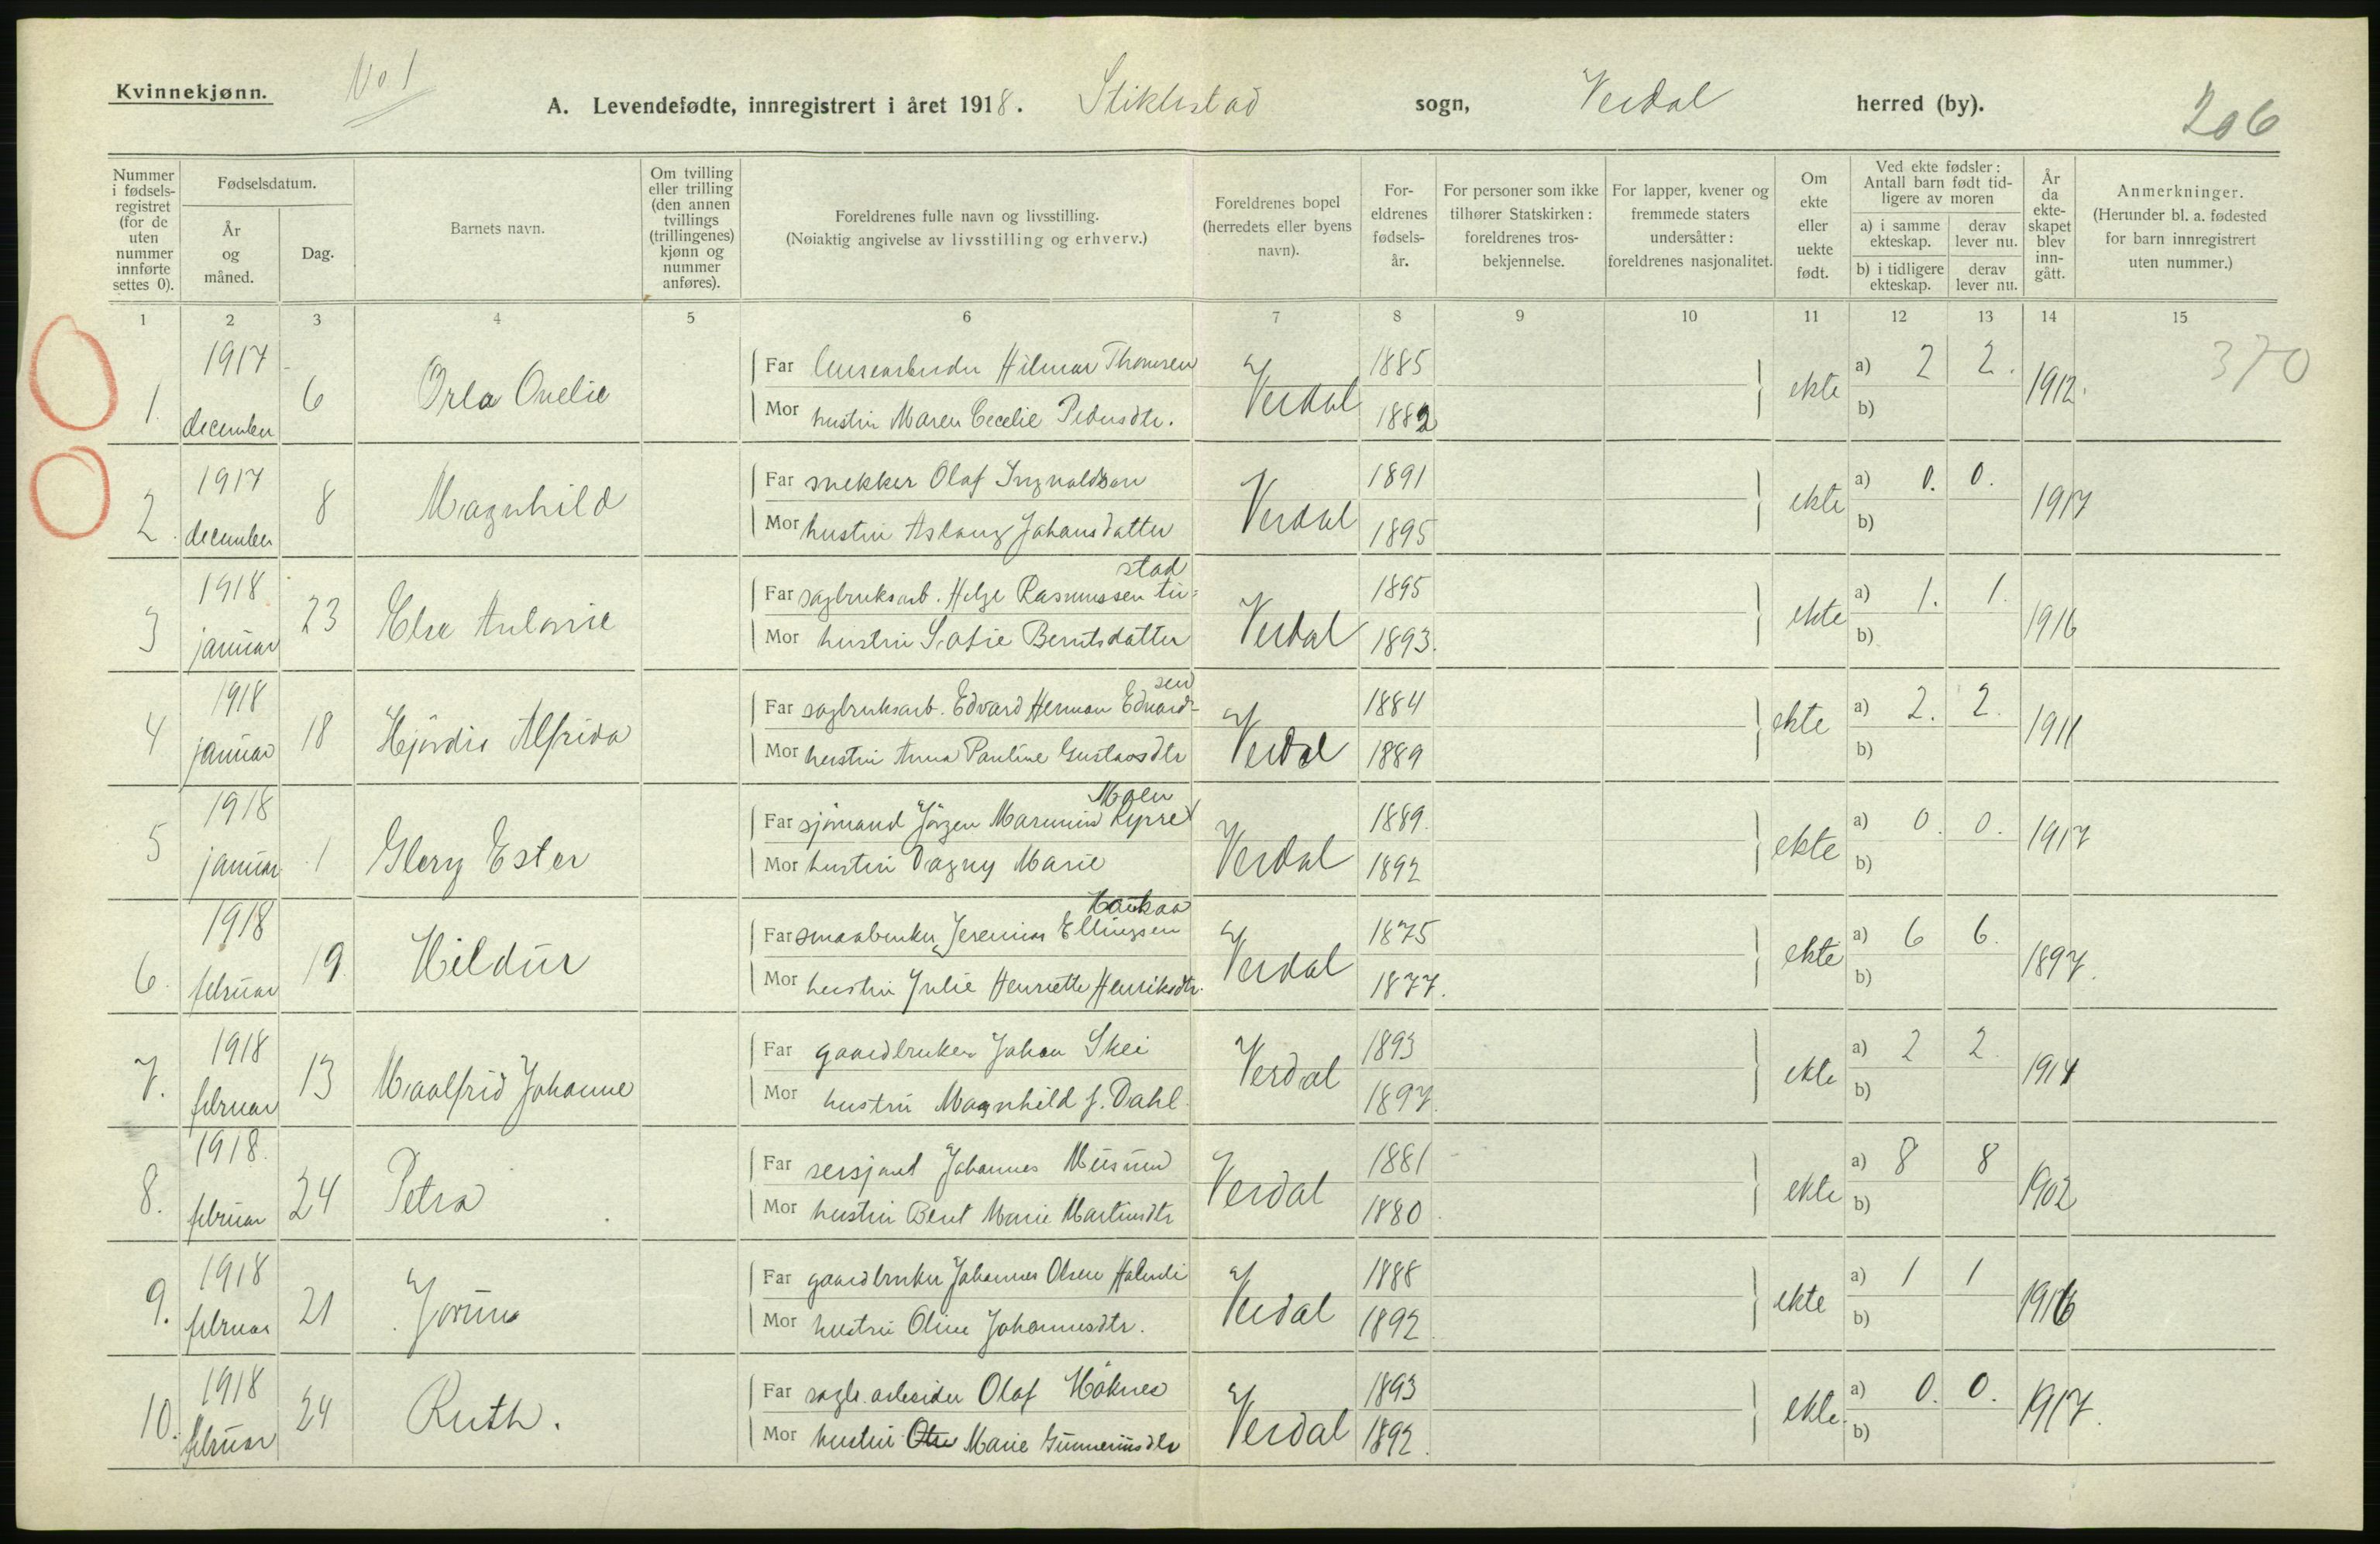 Kvinnekjønn.
No 1
A. Levendefødte, innregistrert i året 1918. Stiklestad sogn, Verdal herred (by).
206
Nummer i fødselsregistret (for de uten nummer innførte settes 0).
Fødselsdatum.
År og måned.
Dag.
Barnets navn.
Om tvilling eller trilling (den annen tvillings (trillingenes) kjønn og nummer anføres).
Foreldrenes fulle navn og livsstilling.
(Nøiaktig angivelse av livsstilling og erhverv.)
Foreldrenes bopel (herredets eller byens navn).
Foreldrenes fødselsår.
For personer som ikke tilhører Statskirken: foreldrenes trosbekjennelse.
For lapper, kvener og fremmede staters undersåtter: foreldrenes nasjonalitet.
Om ekte eller uekte født.
Ved ekte fødsler: Antall barn født tidligere av moren
a) i samme ekteskap.
derav lever nu.
b) i tidligere ekteskap.
derav lever nu.
År da ekteskapet blev inngått.
Anmerkninger.
(Herunder bl. a. fødested for barn innregistrert uten nummer.)
1 2 3 4 5 6 7 8 9 10 11 12 13 14 15
370
1. 1917 december 6 Orla Ovelie
Far Hilmar Thomsen Verdal 1885 ekte a) 2 2. 1912.
Mor hustru Maren Cecelie Pedersdtr. 1882 b)
2. 1917 december 8 Magnhild
Far snekker Olaf Ingvaldsen Verdal 1891 ekte a) 0. 0. 1917
Mor hustru Aslaug Johansdatter 1895 b)
3 1918 januar 23 Else Antonie
Far sagbruksarb. Helge Rasmussen Tiistad Verdal 1895 ekte a) 1. 1. 1916
Mor hustru Sofie Berntsdatter 1893. b)
4 1918 januar 18 Hjördis Alfrida
Far sagbruksarb. Edvard Herman Edvardsen Verdal 1884 ekte a) 2. 2. 1911
Mor hustru Anna Pauline Gustavsdtr 1889 b)
5 1918 januar 1 Glery Ester
Far sjömand Jörgen Marinius Moen Verdal 1889. ekte a) 0. 0. 1917
Mor hustru Dagny Marie 1892 b)
6. 1918 februar 19. Hildur
Far smaabruker Jeremias Ellingsen Haukaa Verdal 1875 ekte a) 6 6. 1897.
Mor hustru Julie Henriette Henriksdtr. 1877. b)
7. 1918 februar 13 Maalfrid Johanne
Far gaardbruker Johan Skei Verdal 1893 ekte a) 2 2. 1914
Mor hustru Magnhild f. Dahl. 1897. b)
8. 1918. februar 24 Petra
Far sersjant Johannes Musum Verdal 1881 ekte a) 8 8 1902
Mor hustru Beret Marie Martinsdtr 1880 b)
9. 1918 februar 21 Jorunn
Far gaardbruker Johannes Olsen Verdal 1888 ekte a) 1 1 1916
Mor hustru Oline Johannesdtr. 1892. b)
10. 1918 februar 24 Ruth.
Far sagbr. arbeider Olaf Höknes Verdal 1893 ekte. a) 0. 0. 1917.
Mor hustru Marie Gunneriusdtr 1892. b)